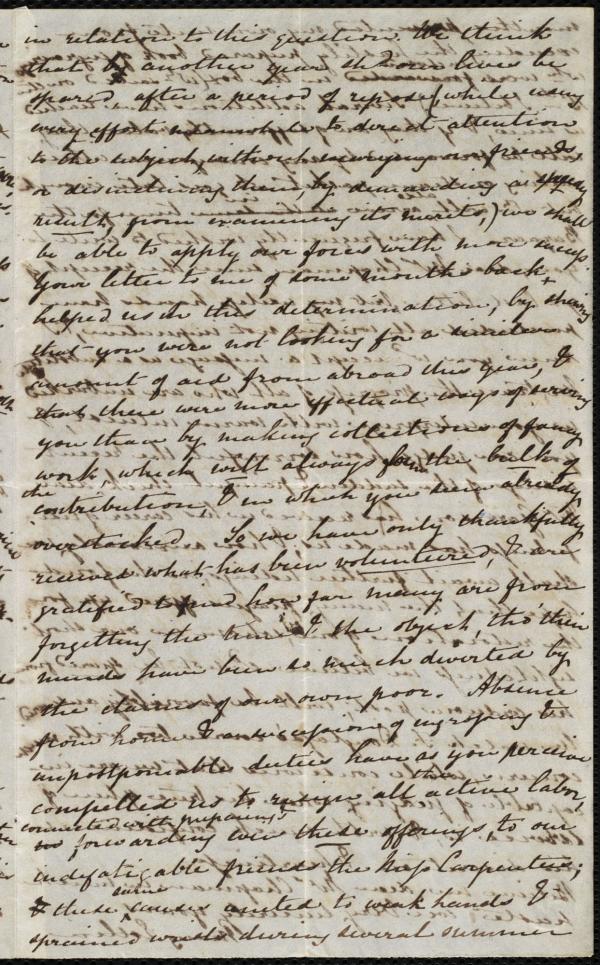 in relation to this question. We think
that by another year shd our lives be
spared after a period of repose, (while using
every effort meanwhile to direct attention
to the subject, without wearying our friends,
or disinclining them, by demanding a speedy
result, from examining its merits,) we shall
be able to apply our forces with more success
Your letter to me of some months back
helped us in this determination, by showing
that you were not looking for a similar
amount of aid from abroad this year, &
that there were more effectual ways of serving
you than by making collections of fancy
work, which will always form the bulk of
the contribution, & in which you seem already
overstocked. So we have only thankfully
received what has been volunteered, & are
gratified to find how far many are from
forgetting the time & the object, tho' their
minds have been so much diverted by
the claims of our own poor. Absence
from home & a succession of engrossing &
unpostponable duties have as you perceive
compelled us to resign all this active labor,
connected with preparing &
forwarding over these offerings, to our
indefatigable friends the Miss Carpenters;
& these same causes united to weak hands &
sprained wrists during several summer